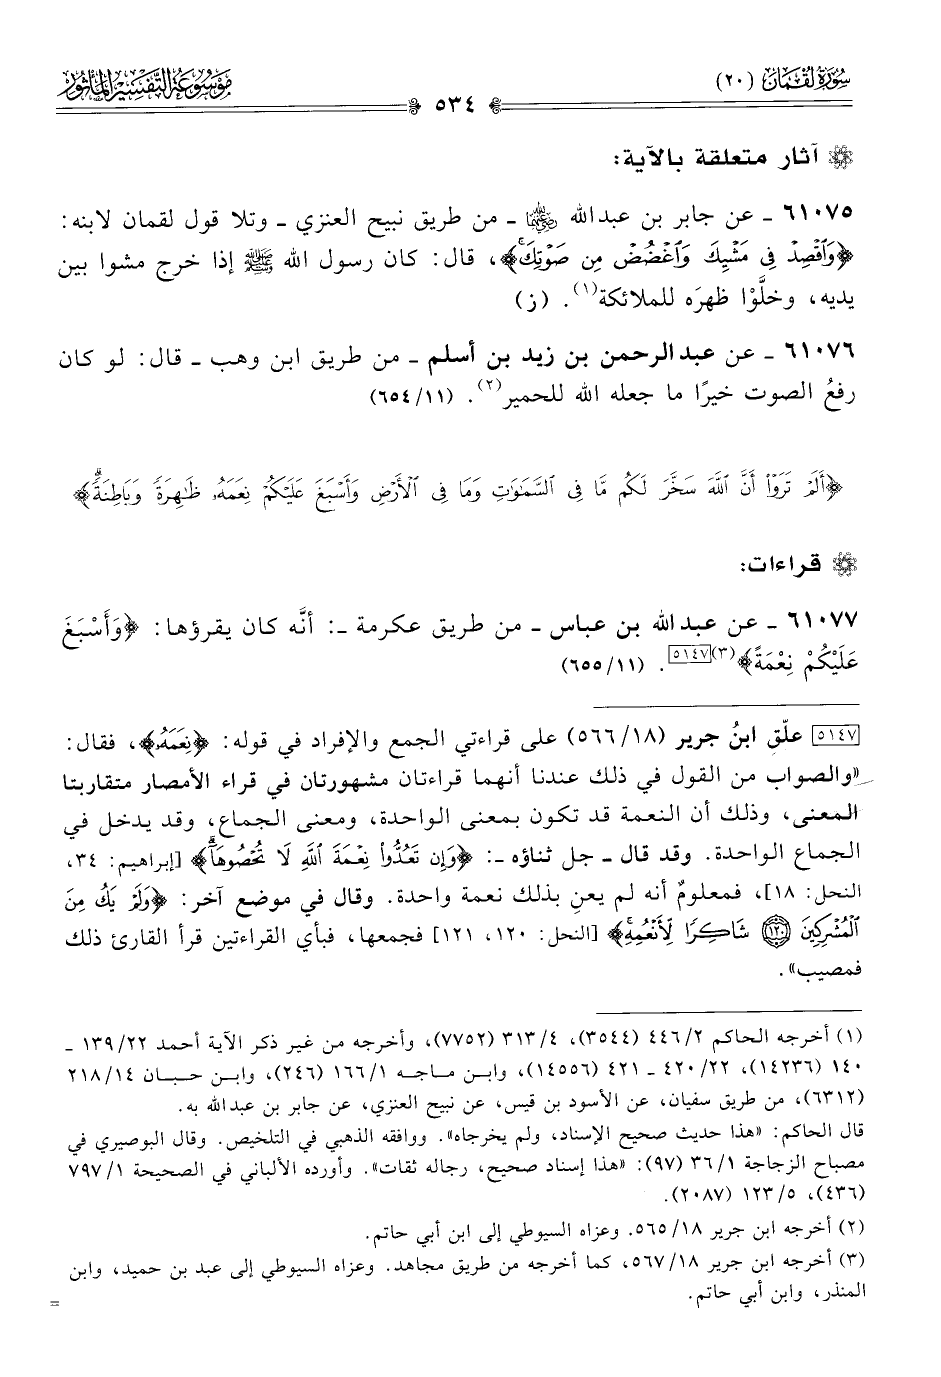 سورة لقمان (٢٠)
٥٣٤
موسوعة التفسير المأثور
آثار متعلقة بالآية:
٦١٠٧٥ ـ عن جابر بن عبدالله ﷺ ـ من طريق نبيح العنزي ـ وتلا قول لقمان لابنه:
﴿وَٱقْصِدْ فِى مَشْيِكَ وَٱغْضُضْ مِن صَوْتِكَ﴾، قال: كان رسول الله ﷺ إذا خرج مشوا بين
يديه، وخلَّوْا ظهرَه للملائكة(١). (ز)
٦١٠٧٦ ـ عن عبدالرحمن بن زيد بن أسلم ـ من طريق ابن وهب ـ قال: لو كان
رفعُ الصوت خيرًا ما جعله الله للحمير(٢). (٦٥٤/١١)
﴿أَلَمْ تَرَوْا۟ أَنَّ ٱللَّهَ سَخَّرَ لَكُم مَّا فِى ٱلسَّمَٰوَٰتِ وَمَا فِى ٱلْأَرْضِ وَأَسْبَغَ عَلَيْكُمْ نِعَمَهُۥ ظَٰهِرَةً وَبَاطِنَةً﴾
قراءات:
٦١٠٧٧ ـ عن عبدالله بن عباس ـ من طريق عكرمة ـ: أنَّه كان يقرؤها: ﴿وَأَسْبَغَ
عَلَيْكُمْ نِعْمَةً﴾(٣)[٥١٤٧]. (٦٥٥/١١)
[٥١٤٧] علّق ابنُ جرير (٥٦٦/١٨) على قراءتي الجمع والإفراد في قوله: ﴿نِعَمَهُۥ﴾، فقال:
«والصواب من القول في ذلك عندنا أنهما قراءتان مشهورتان في قراء الأمصار متقاربتا
المعنى، وذلك أن النعمة قد تكون بمعنى الواحدة، ومعنى الجماع، وقد يدخل في
الجماع الواحدة. وقد قال ـ جل ثناؤه ـ: ﴿وَإِن تَعُدُّوا۟ نِعْمَةَ ٱللَّهِ لَا تُحْصُوهَا﴾ [إبراهيم: ٣٤،
النحل: ١٨]، فمعلومٌ أنه لم يعنِ بذلك نعمة واحدة. وقال في موضع آخر: ﴿وَلَمْ يَكُ مِنَ
ٱلْمُشْرِكِينَ ١٢٠ شَاكِرًا لِّأَنْعُمِهِ﴾ [النحل: ١٢٠، ١٢١] فجمعها، فبأي القراءتين قرأ القارئ ذلك
فمصيب».
(١) أخرجه الحاكم ٤٤٦/٢ (٣٥٤٤)، ٣١٣/٤ (٧٧٥٢)، وأخرجه من غير ذكر الآية أحمد ١٣٩/٢٢ ـ
١٤٠ (١٤٢٣٦)، ٤٢٠/٢٢ ـ ٤٢١ (١٤٥٥٦)، وابن ماجه ١٦٦/١ (٢٤٦)، وابن حبان ٢١٨/١٤
(٦٣١٢)، من طريق سفيان، عن الأسود بن قيس، عن نبيح العنزي، عن جابر بن عبدالله به.
قال الحاكم: «هذا حديث صحيح الإسناد، ولم يخرجاه». ووافقه الذهبي في التلخيص. وقال البوصيري في
مصباح الزجاجة ٣٦/١ (٩٧): «هذا إسناد صحيح، رجاله ثقات». وأورده الألباني في الصحيحة ٧٩٧/١
(٤٣٦)، ١٢٣/٥ (٢٠٨٧).
(٢) أخرجه ابن جرير ٥٦٥/١٨. وعزاه السيوطي إلى ابن أبي حاتم.
(٣) أخرجه ابن جرير ٥٦٧/١٨، كما أخرجه من طريق مجاهد. وعزاه السيوطي إلى عبد بن حميد، وابن
المنذر، وابن أبي حاتم.
=